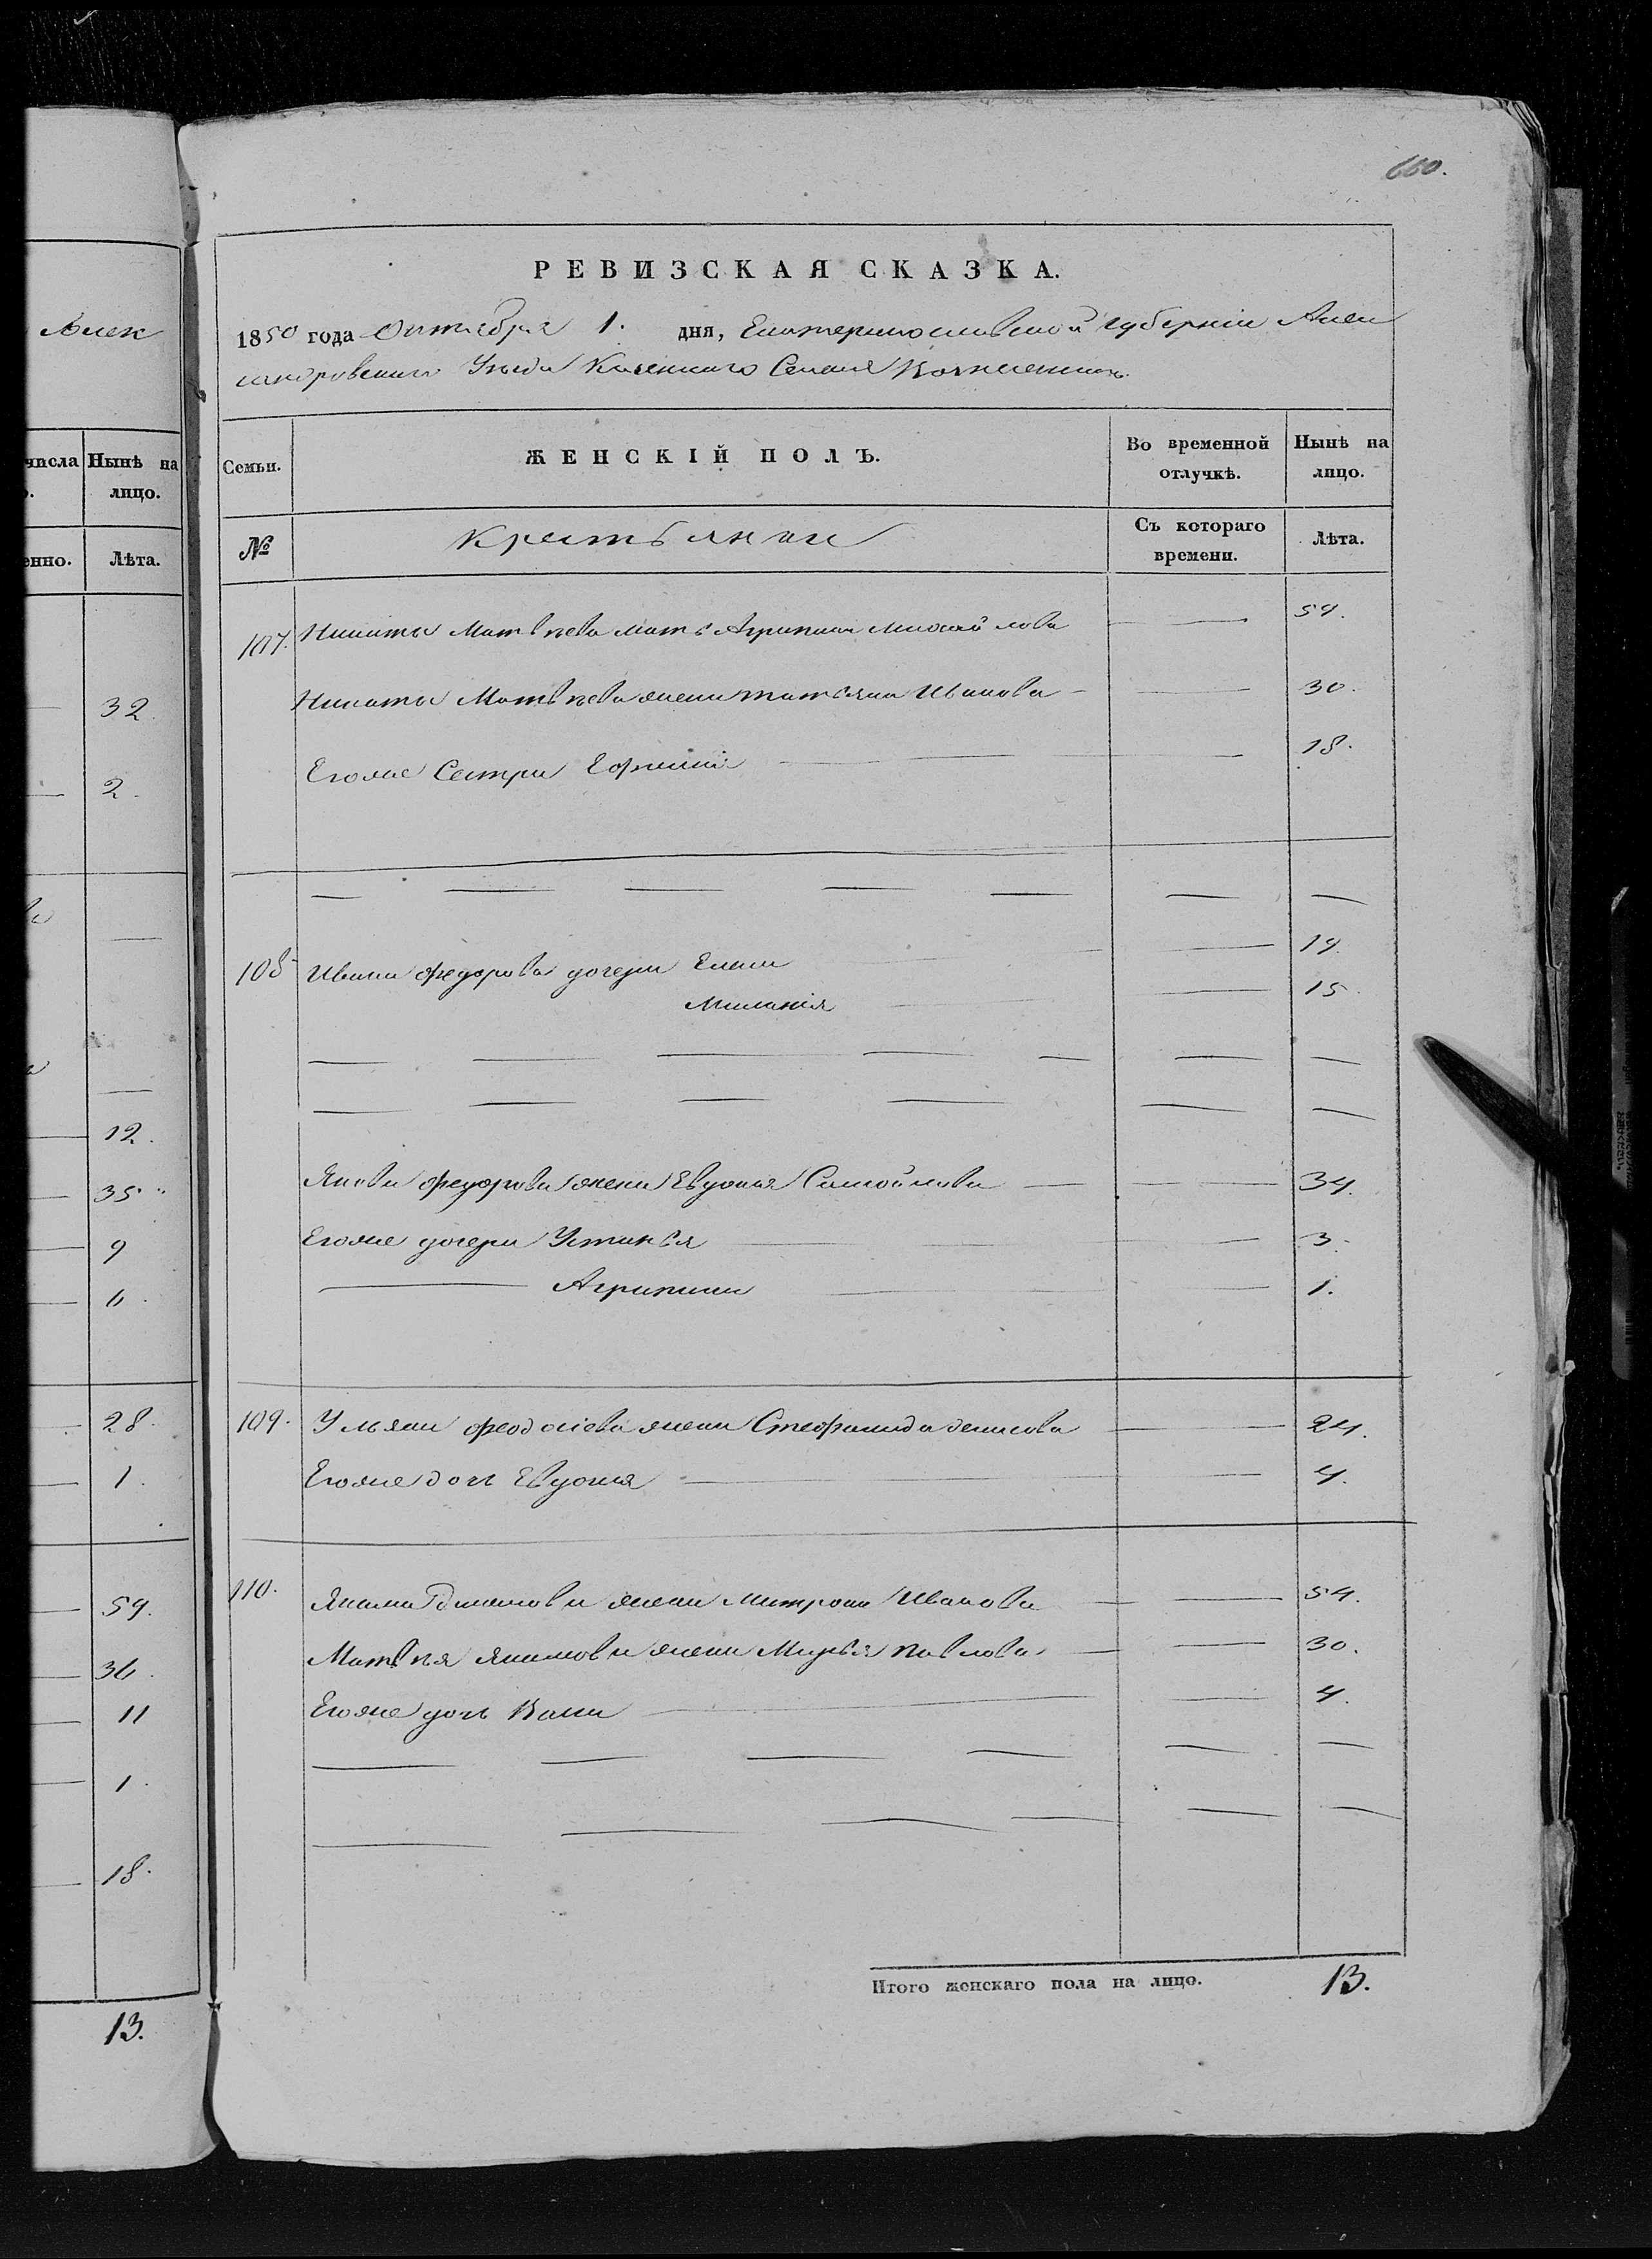 660.
РЕВИЗСКАЯ СКАЗКА.
1850 года Октября 1. дня, Екатеринославской губерніи Алек
сандровскаго Уѣзда Казеннаго Селенія Вознесенки
Семьи.
ЖЕНСКІЙ ПОЛЪ.
Во временной отлучкѣ.
Нынѣ на лицо.
№
Крестьянки
Съ котораго времени.
Лѣта.
107. Никиты Матвѣева мать Агрипина Михайлова 54.
Никиты Матвѣева жена Татьяна Иванова 30.
Егоже Сестра 18.
108 Ивана Федорова дочери Елена 19.
Миланія 15.
Якова Федорова жена Евдокія Самойлова 34.
Егоже дочери Устинья 3.
Агрипина 1.
109. Ульяна Феодосіева жена Стефанида денисова 24.
Егоже дочь Евдокія 4.
110. Якима жена Матрона Иванова 54.
Матвѣя Якимова жена Марья Павлова 30.
Егоже дочь 4.
Итого женскаго пола на лицо. 13.
Алек
числа
Нынѣ на лицо.
енно.
Лѣта.
32
2.
12.
35
9
6.
28.
1.
59.
36.
11
1.
18.
13.